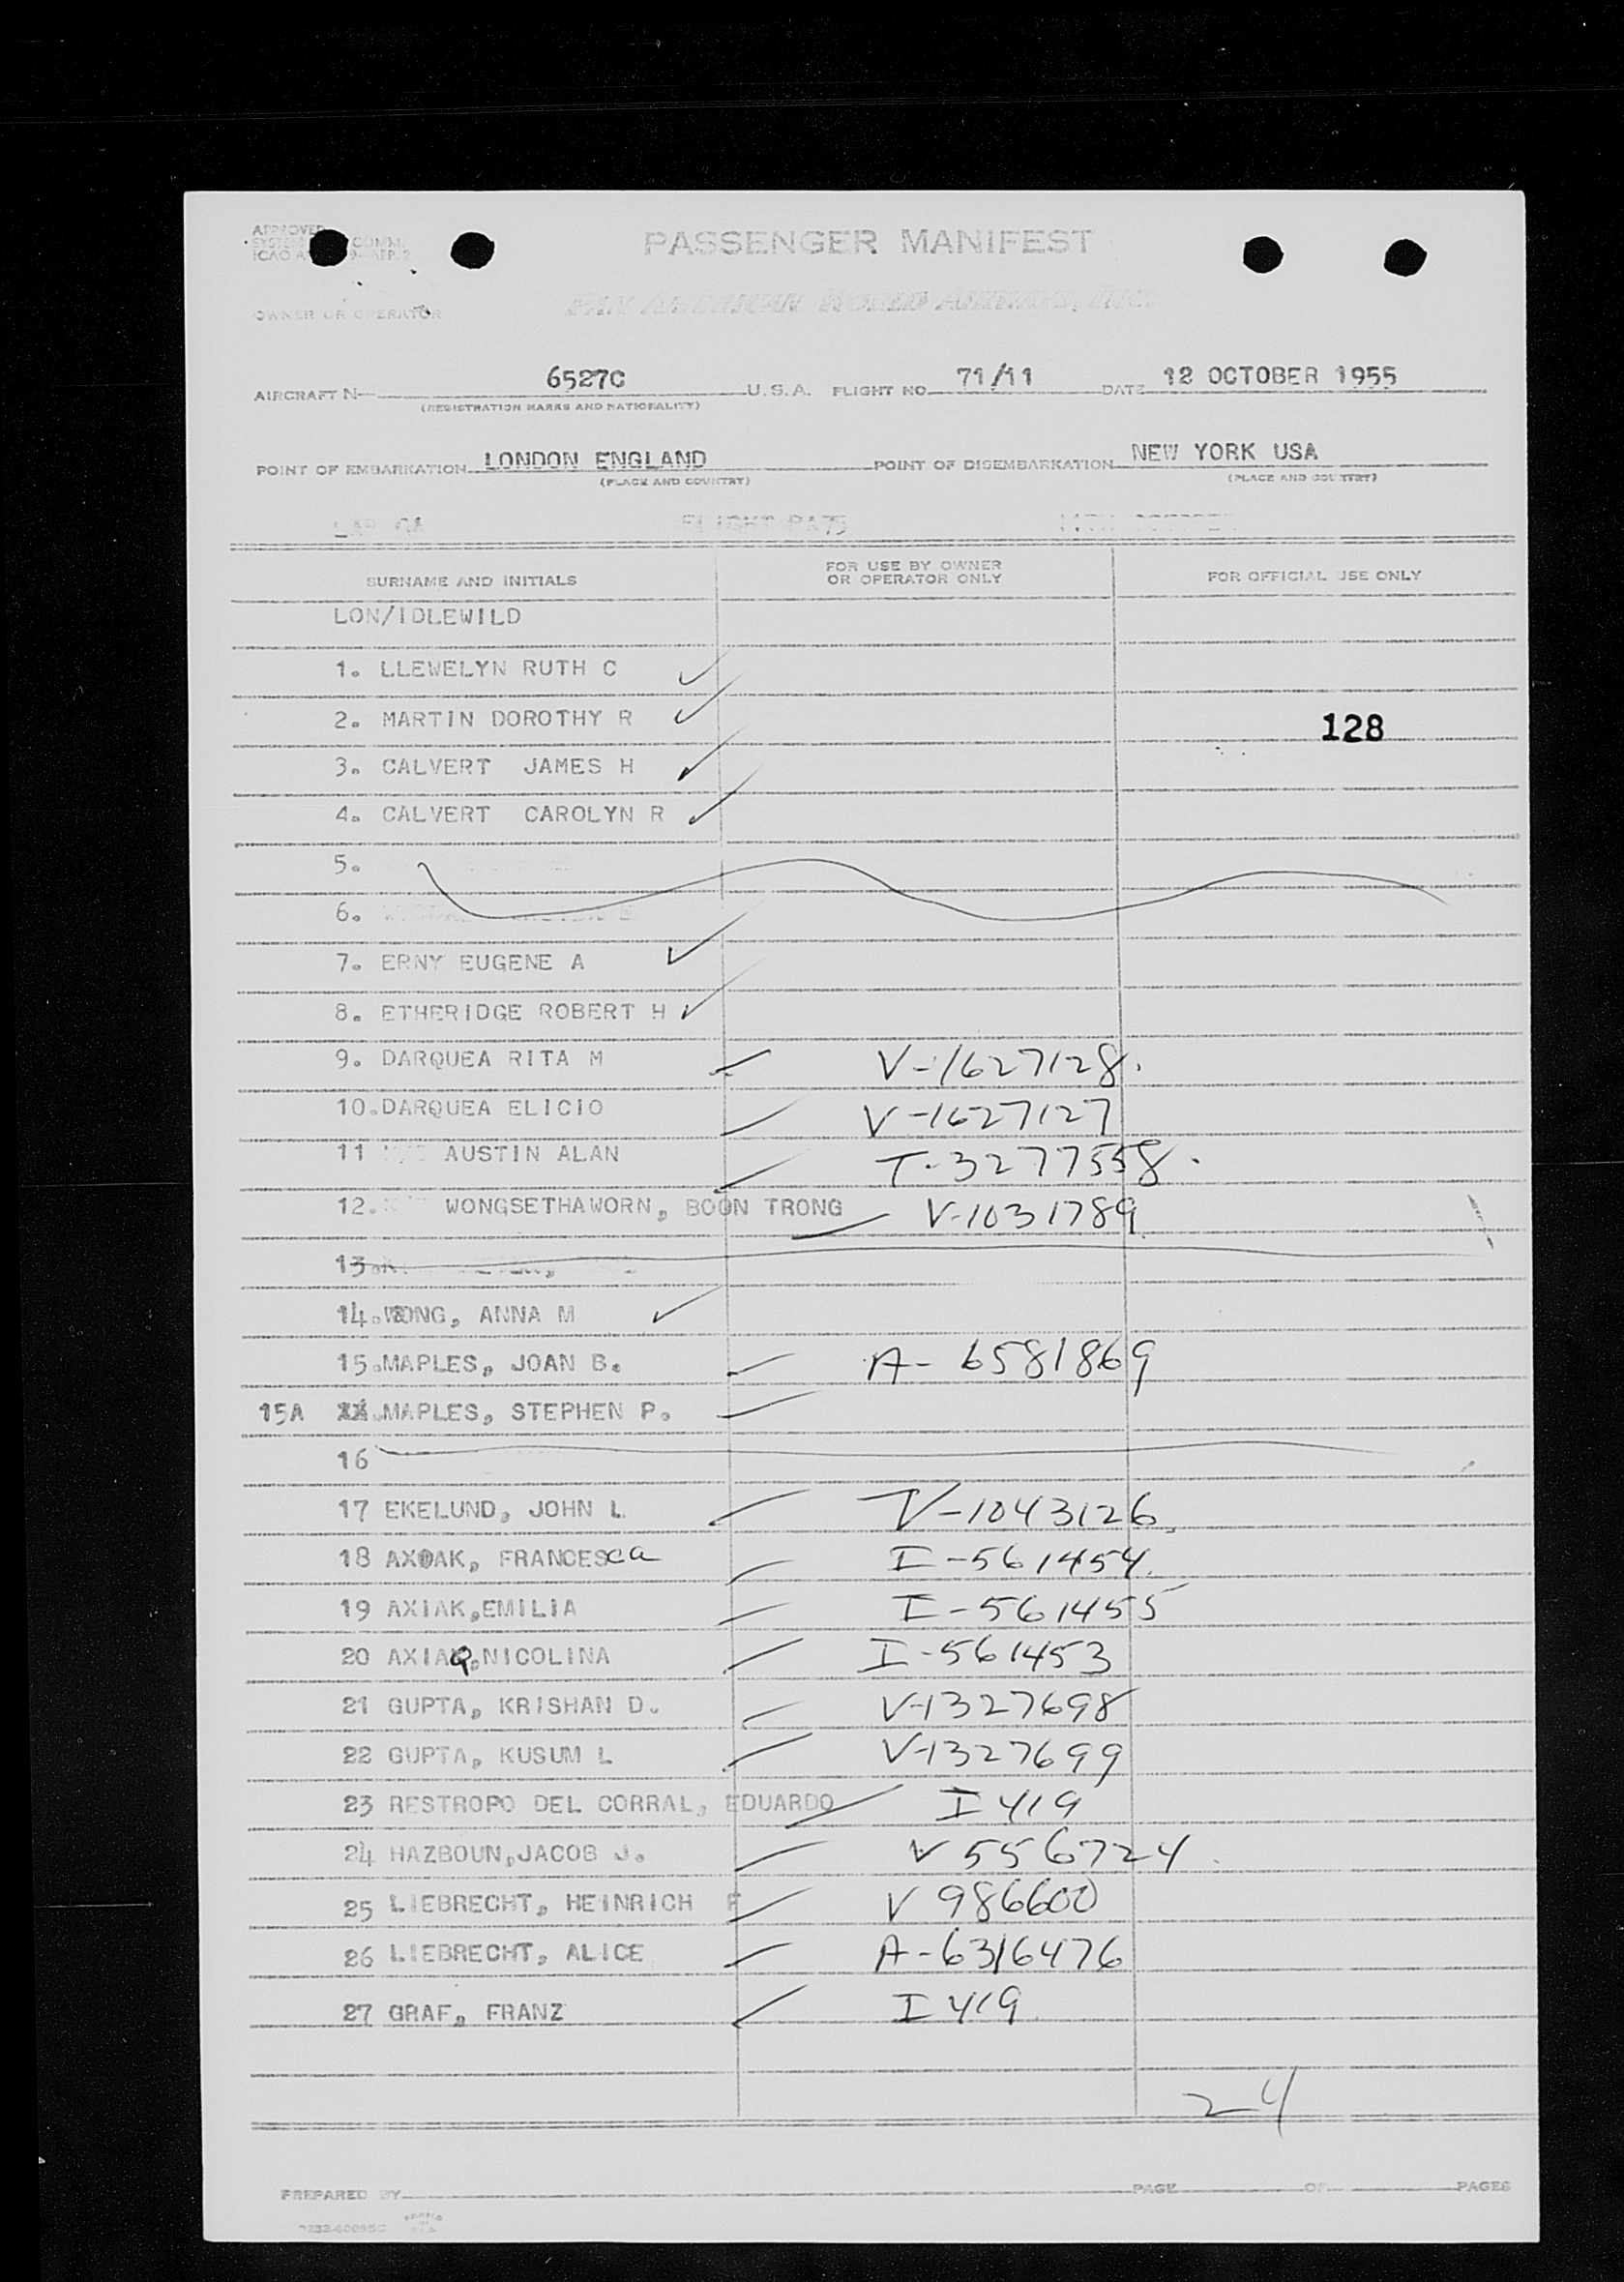 APPROVED
SYSTEM COMM.
ICAO A 9-APP. 2
PASSENGER MANIFEST
OWNER OR OPERATOR PAN AMERICAN WORLD AIRWAYS, INC.
AIRCRAFT N 6527C U.S.A. FLIGHT NO. 71/11 DATE 12 OCTOBER 1955
(REGISTRATION MARKS AND NATIONALITY)
POINT OF EMBARKATION LONDON ENGLAND POINT OF DISEMBARKATION NEW YORK USA
(PLACE AND COUNTRY) (PLACE AND COUNTRY)
FLIGHT PA75
SURNAME AND INITIALS FOR USE BY OWNER OR OPERATOR ONLY FOR OFFICIAL USE ONLY
LON/IDLEWILD
1. LLEWELYN RUTH C
2. MARTIN DOROTHY R 128
3. CALVERT JAMES H
4. CALVERT CAROLYN R
5.
6.
7. ERNY EUGENE A
8. ETHERIDGE ROBERT H
9. DARQUEA RITA M V-1627128.
10. DARQUEA ELICIO V-1627127
11 AUSTIN ALAN T-3277558.
12. WONGSETHAWORN, BOON TRONG V-1031789
13.
14. WONG, ANNA M
15. MAPLES, JOAN B. A-6581869
15A XX. MAPLES, STEPHEN P.
16
17 EKELUND, JOHN L TV-1043126
18 AXIAK, FRANCESCA I-561454.
19 AXIAK, EMILIA I-561455
20 AXIAQ, NICOLINA I-561453
21 GUPTA, KRISHAN D. V-1327698
22 GUPTA, KUSUM L V-1327699
23 RESTROPO DEL CORRAL, EDUARDO I 419
24 HAZBOUN, JACOB J. V 556724
25 LIEBRECHT, HEINRICH F V 986600
26 LIEBRECHT, ALICE A-6316476
27 GRAF, FRANZ I 419
24
PREPARED BY PAGE OF PAGES